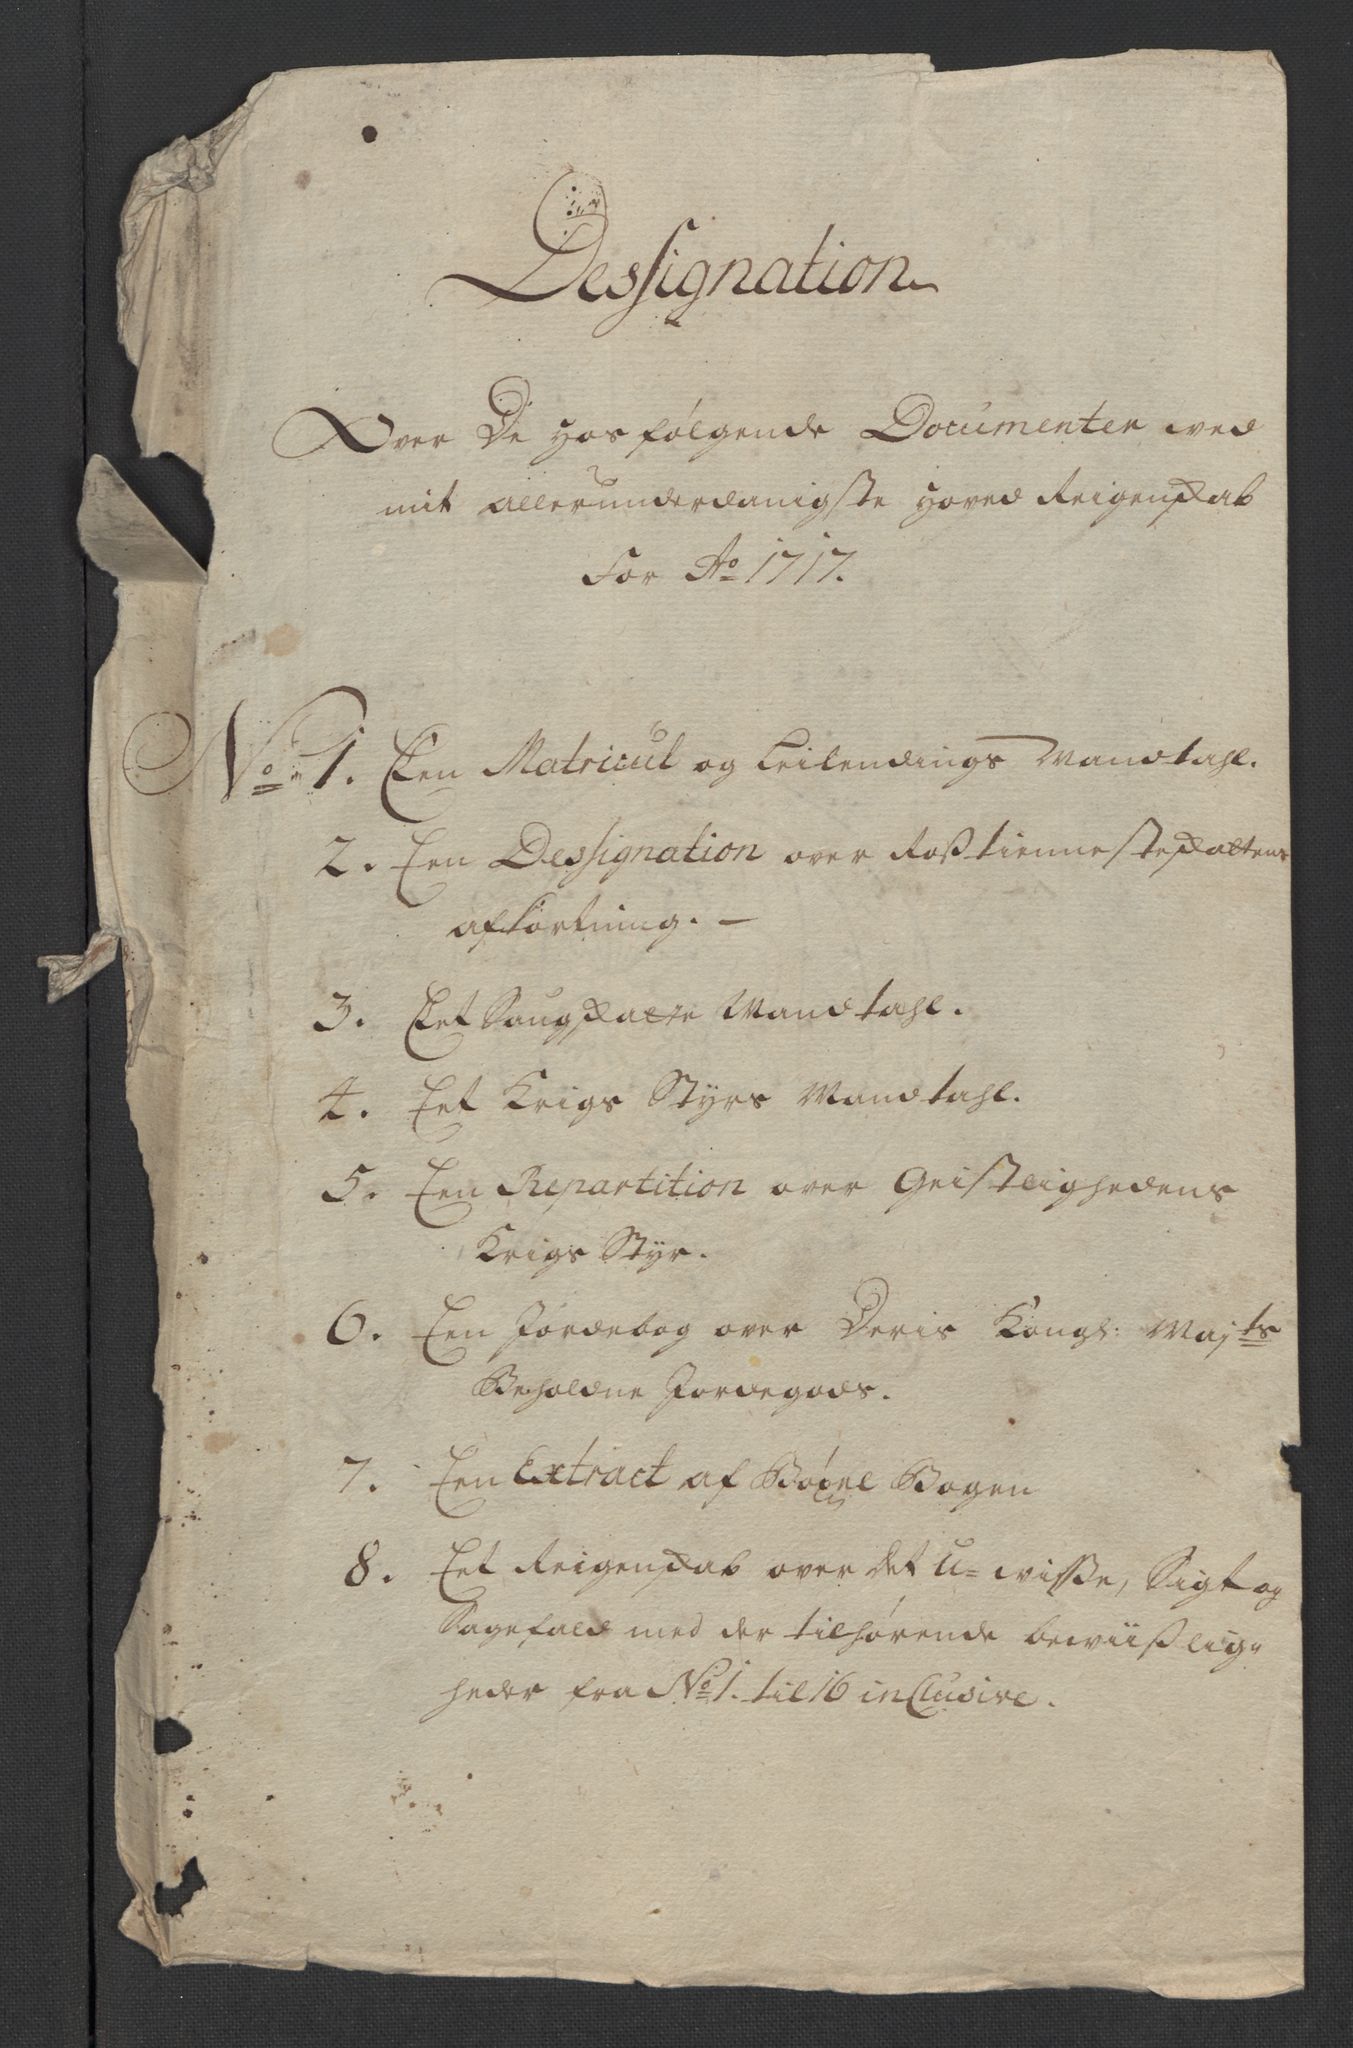 Dessignation
Over De hosfølgende Documenter wed
mit allerunderdanigste Hoved Reigenskab
for Ao 1717.
No 1. Een Matricul og Leilendings Mandtahl.
2. Een Dessignation over Rosstienneste skattens
afkortning. —
3. Eet Saugskatte Mandtahl.
4. Eet Krigs Styrs Mandtahl.
5. Een Repartition over Geistlighedens
Krigs Styr.
6. Een Jordebog over Deris Kongl: Majts
Beholdne Jordegods.
7. Een Extract af Böxel Bogen
8. Eet Reigenskab over det U=wisse, Sigt og
Sagefald med der tilhørende bewiislig-
heder fra No 1. til 16 inclusive.